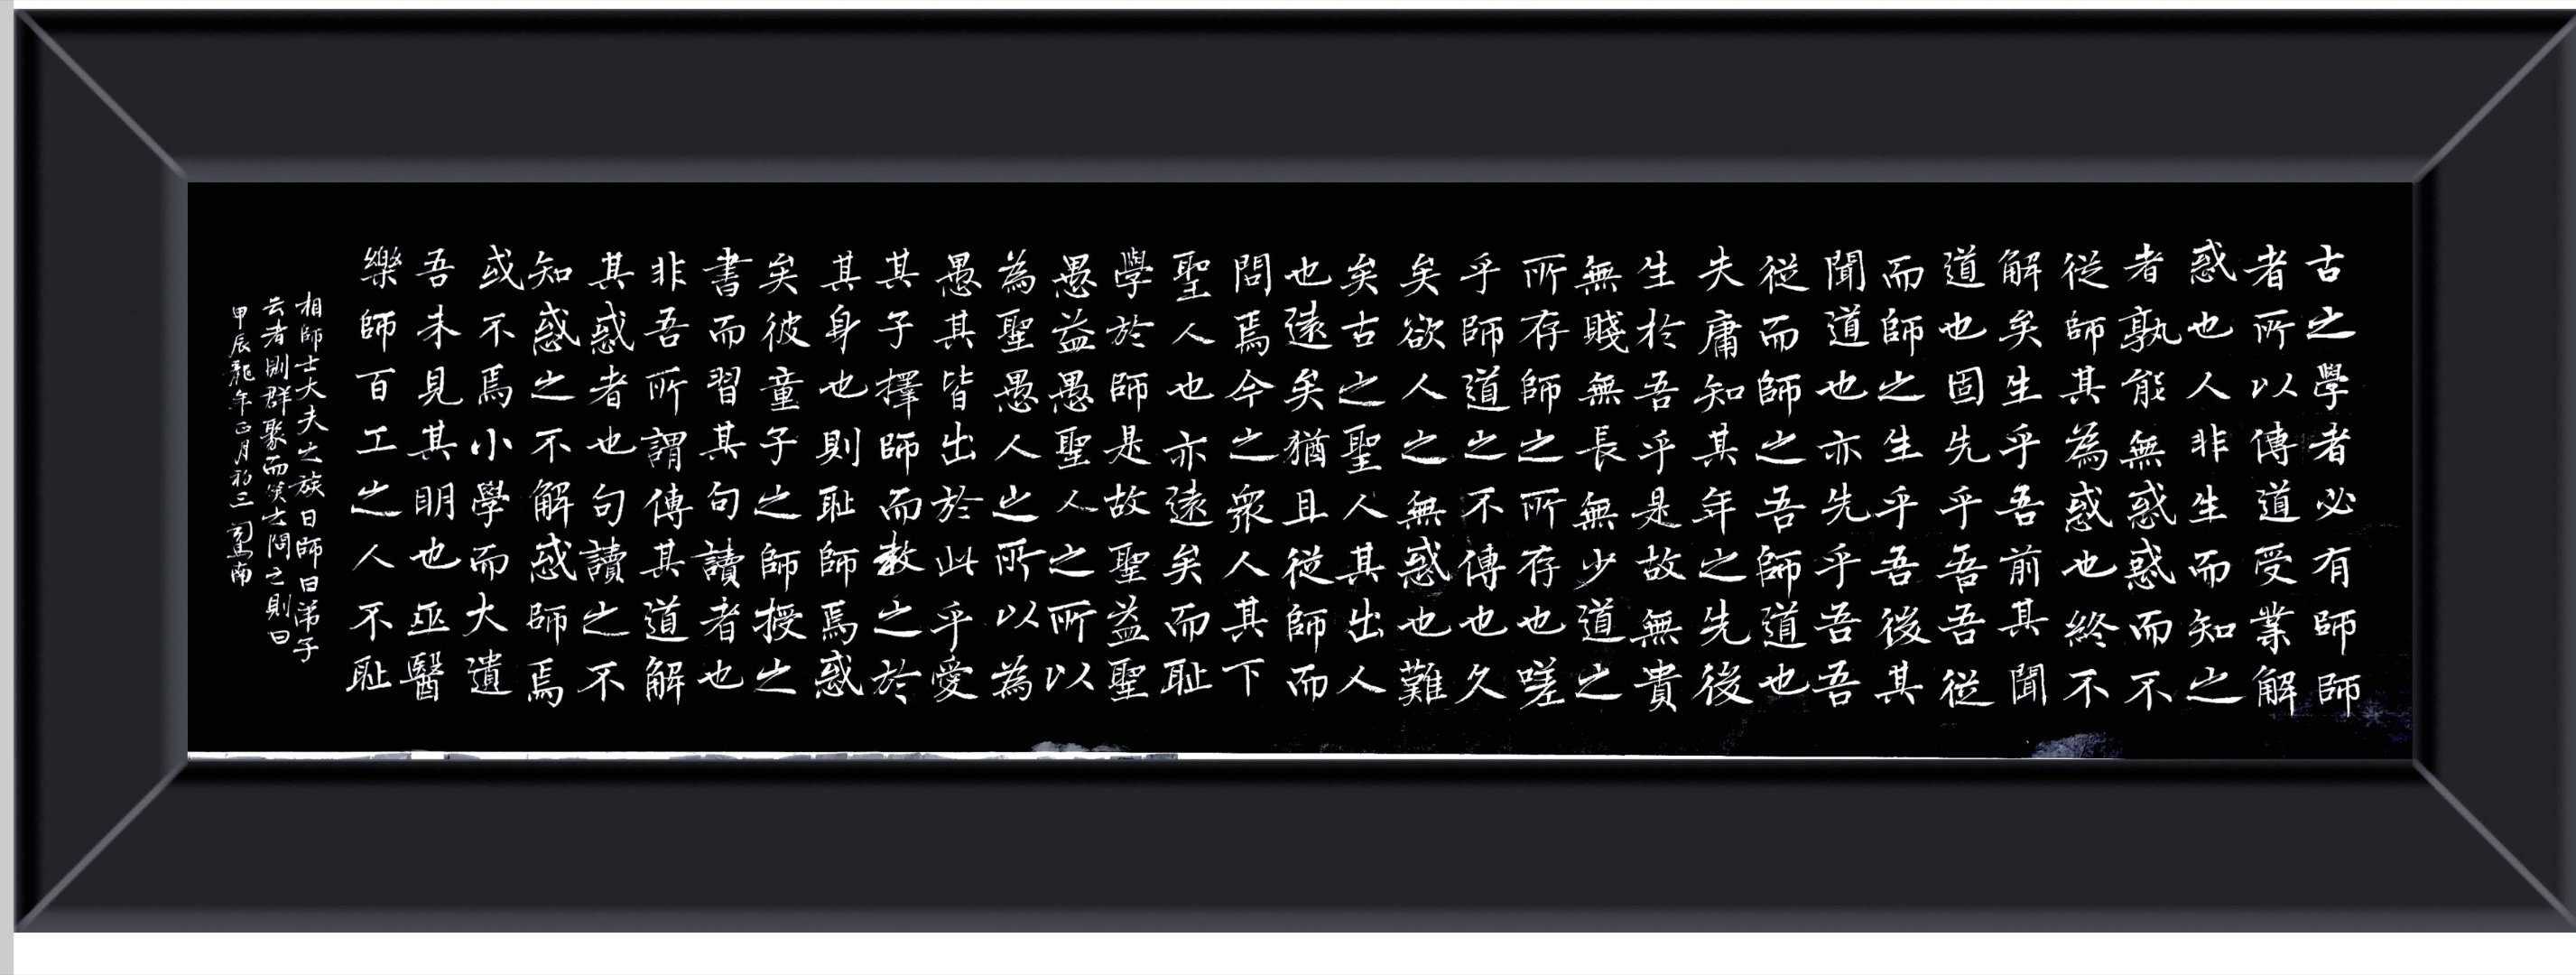 古之學者必有師師
者所以傳道受業解
惑也人非生而知之
者孰能無惑惑而不
從師其為惑也終不
解矣生乎吾前其聞
道也固先乎吾吾從
而師之生乎吾後其
聞道也亦先乎吾吾
從而師之吾師道也
夫庸知其年之先後
生於吾乎是故無貴
無賤無長無少道之
所存師之所存也嗟
乎師道之不傳也久
矣欲人之無惑也難
矣古之聖人其出人
也遠矣猶且從師而
問焉今之衆人其下
聖人也亦遠矣而耻
學於師是故聖益聖
愚益愚聖人之所以
為聖愚人之所以為
愚其皆出於此乎愛
其子擇師而教之於
其身也則耻師焉惑
矣彼童子之師授之
書而習其句讀者也
非吾所謂傳其道解
其惑者也句讀之不
知惑之不解惑師焉
或不焉小學而大遺
吾未見其明也巫醫
樂師百工之人不耻
相師士大夫之族曰師曰弟子
云者則群聚而笑之問之則曰
甲辰龍年正月初三司馬南